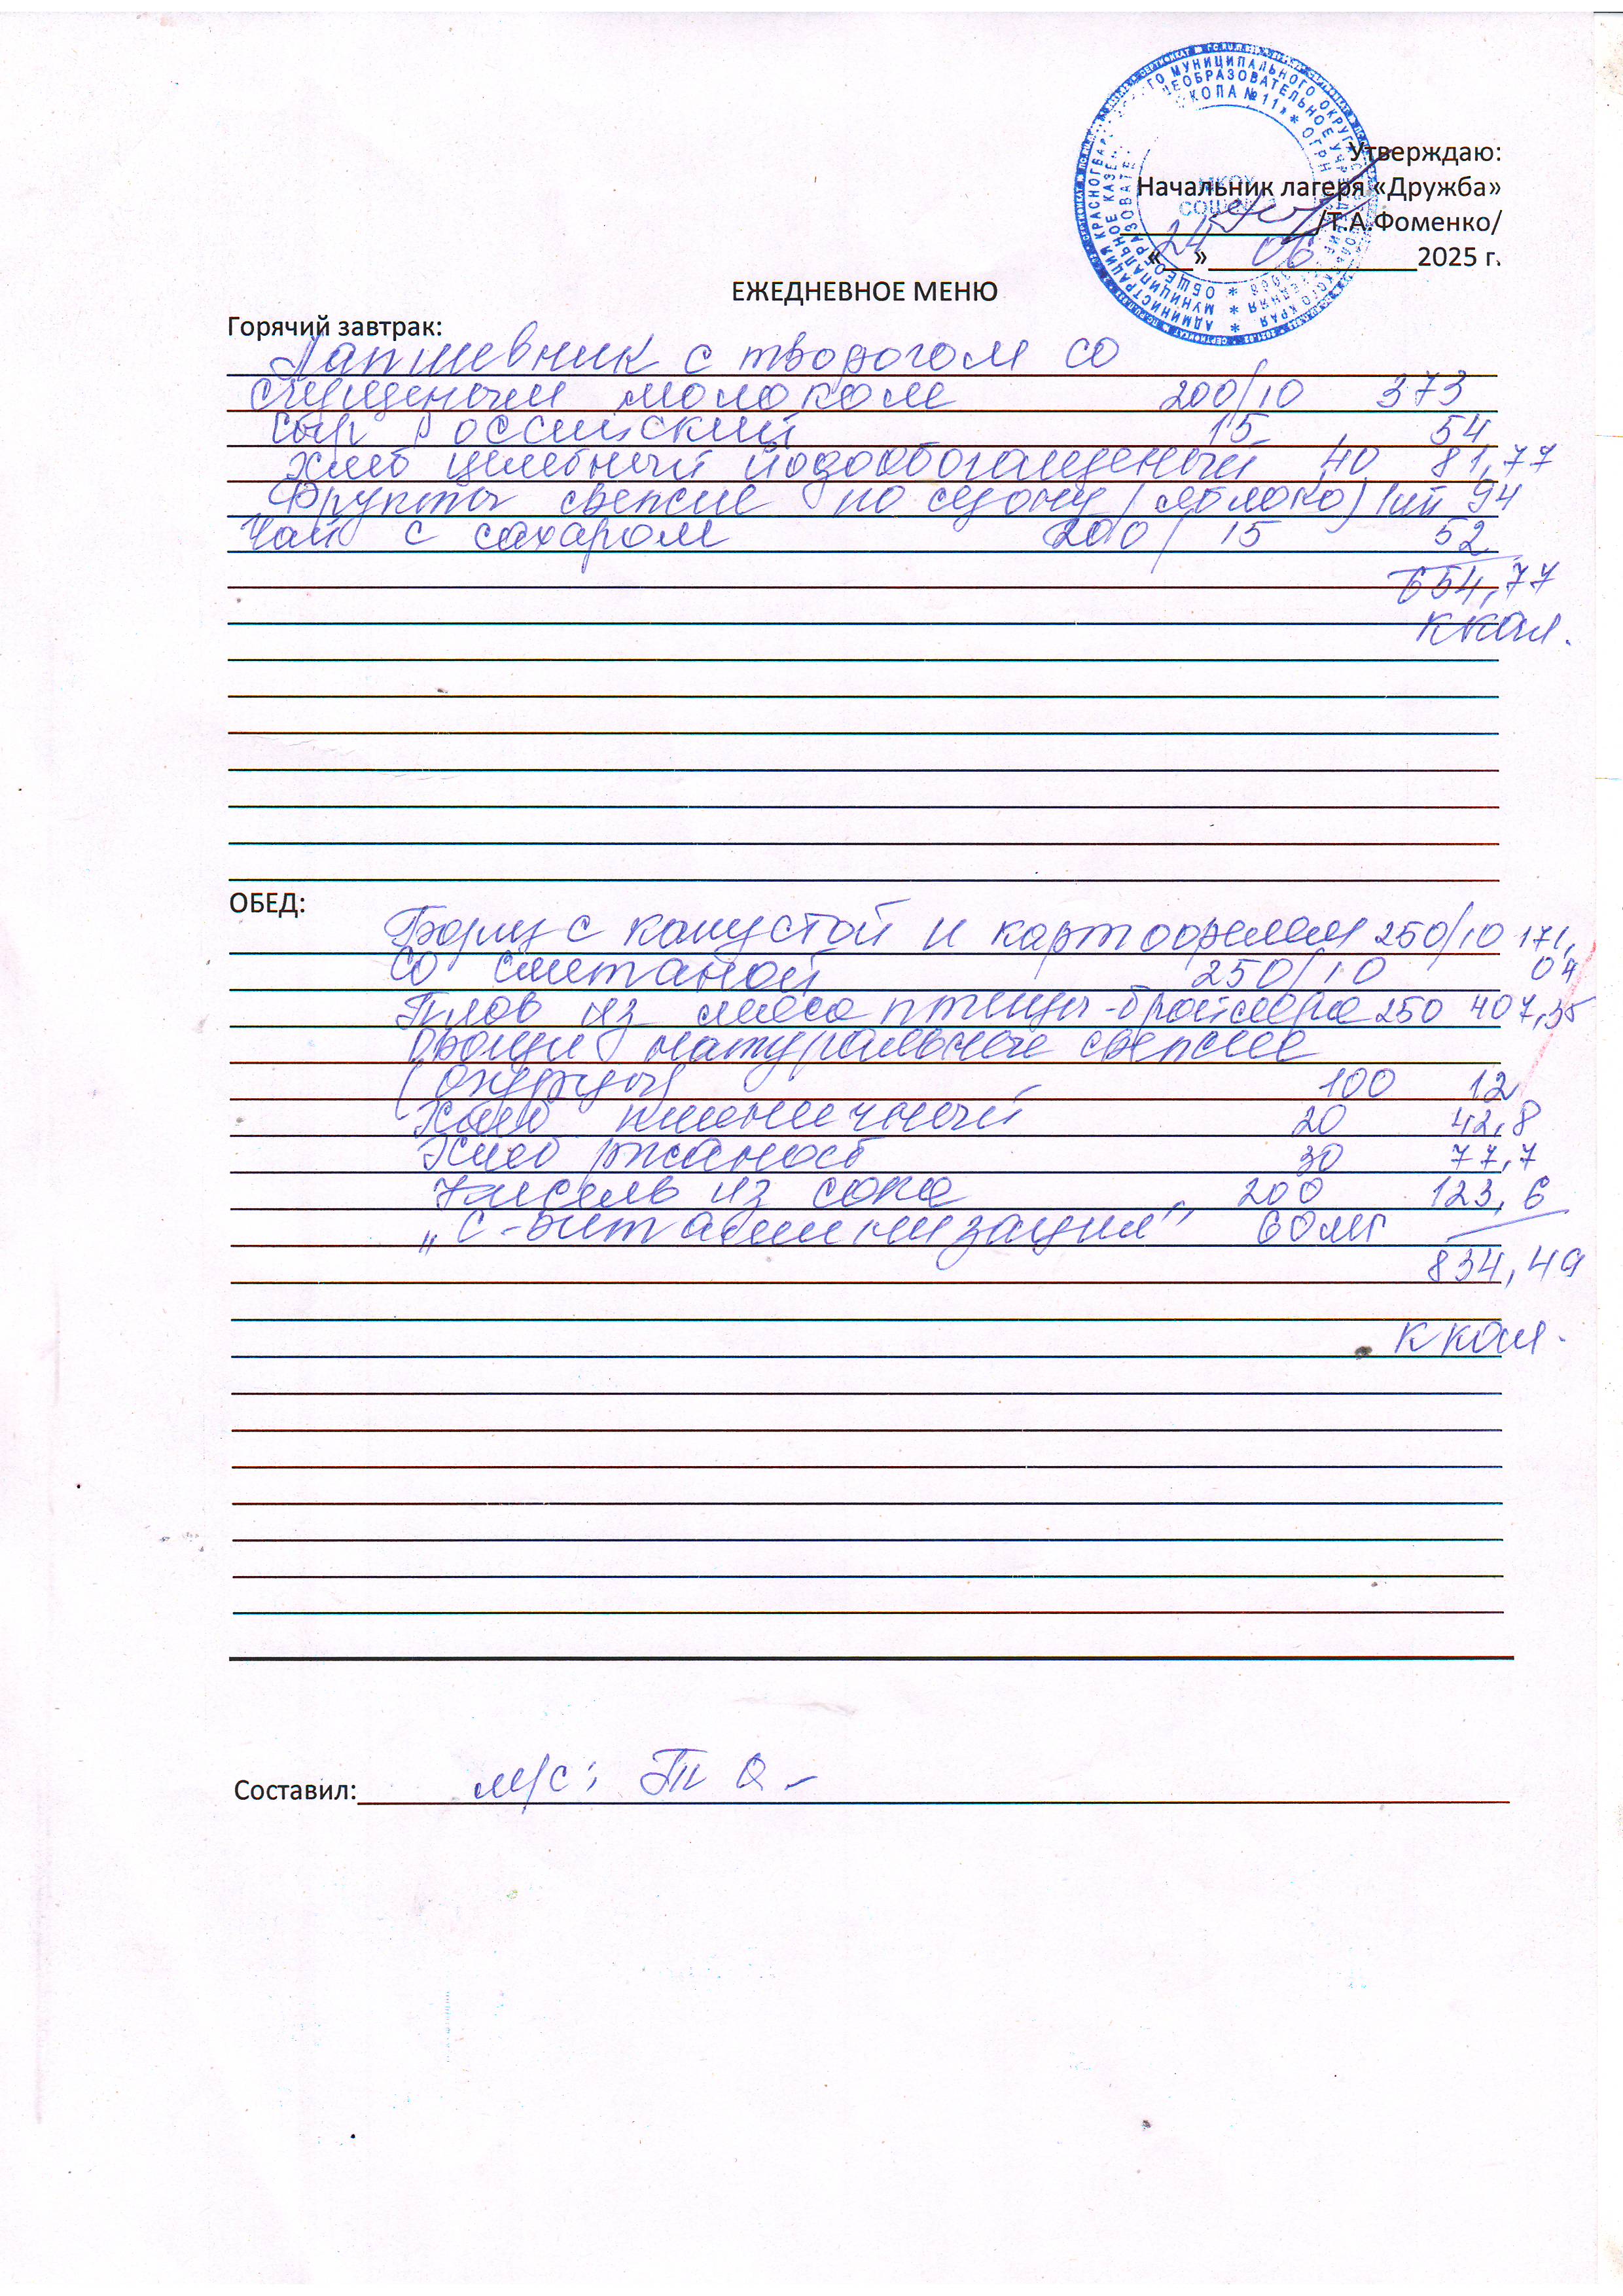 Утверждаю:
Начальник лагеря «Дружба»
/Т.А.Фоменко/
«24» 06 2025 г.
ЕЖЕДНЕВНОЕ МЕНЮ
Горячий завтрак:
Лапшевник с творогом со
сгущеным молоком 200/10 373
Сыр Российский 15 54
Хлеб целебный йодообогащеный 40 81,77
Фрукты свежие по сезону (яблоко) 1шт 94
Чай с сахаром 200/15 52
654,77
ккал.
ОБЕД:
Борщ с капустой и картофелем 250/10 171,
со сметаной 250/10 04
Плов из мяса птицы-бройлера 250 407,35
Овощи натуральные свежие
(огурцы) 100 12
Хлеб пшеничный 20 42,8
Хлеб ржаной 30 77,7
Кисель из сока 200 123,6
„С-витаминизация" 60мг
834,49
ккал.
Составил: м/с:
АДМИНИСТРАЦИЯ КРАСНОГВАР ГО МУНИЦИПАЛЬНОГО ОКРУГА КРАЯ
МУНИЦИПАЛЬНОЕ КАЗЕН ЕОБРАЗОВАТЕЛЬНОЕ УЧРЕЖДЕНИЕ
ОБЩЕОБРАЗОВАТЕ КОЛА №11» * ОГРН
МКОУ
СОШ